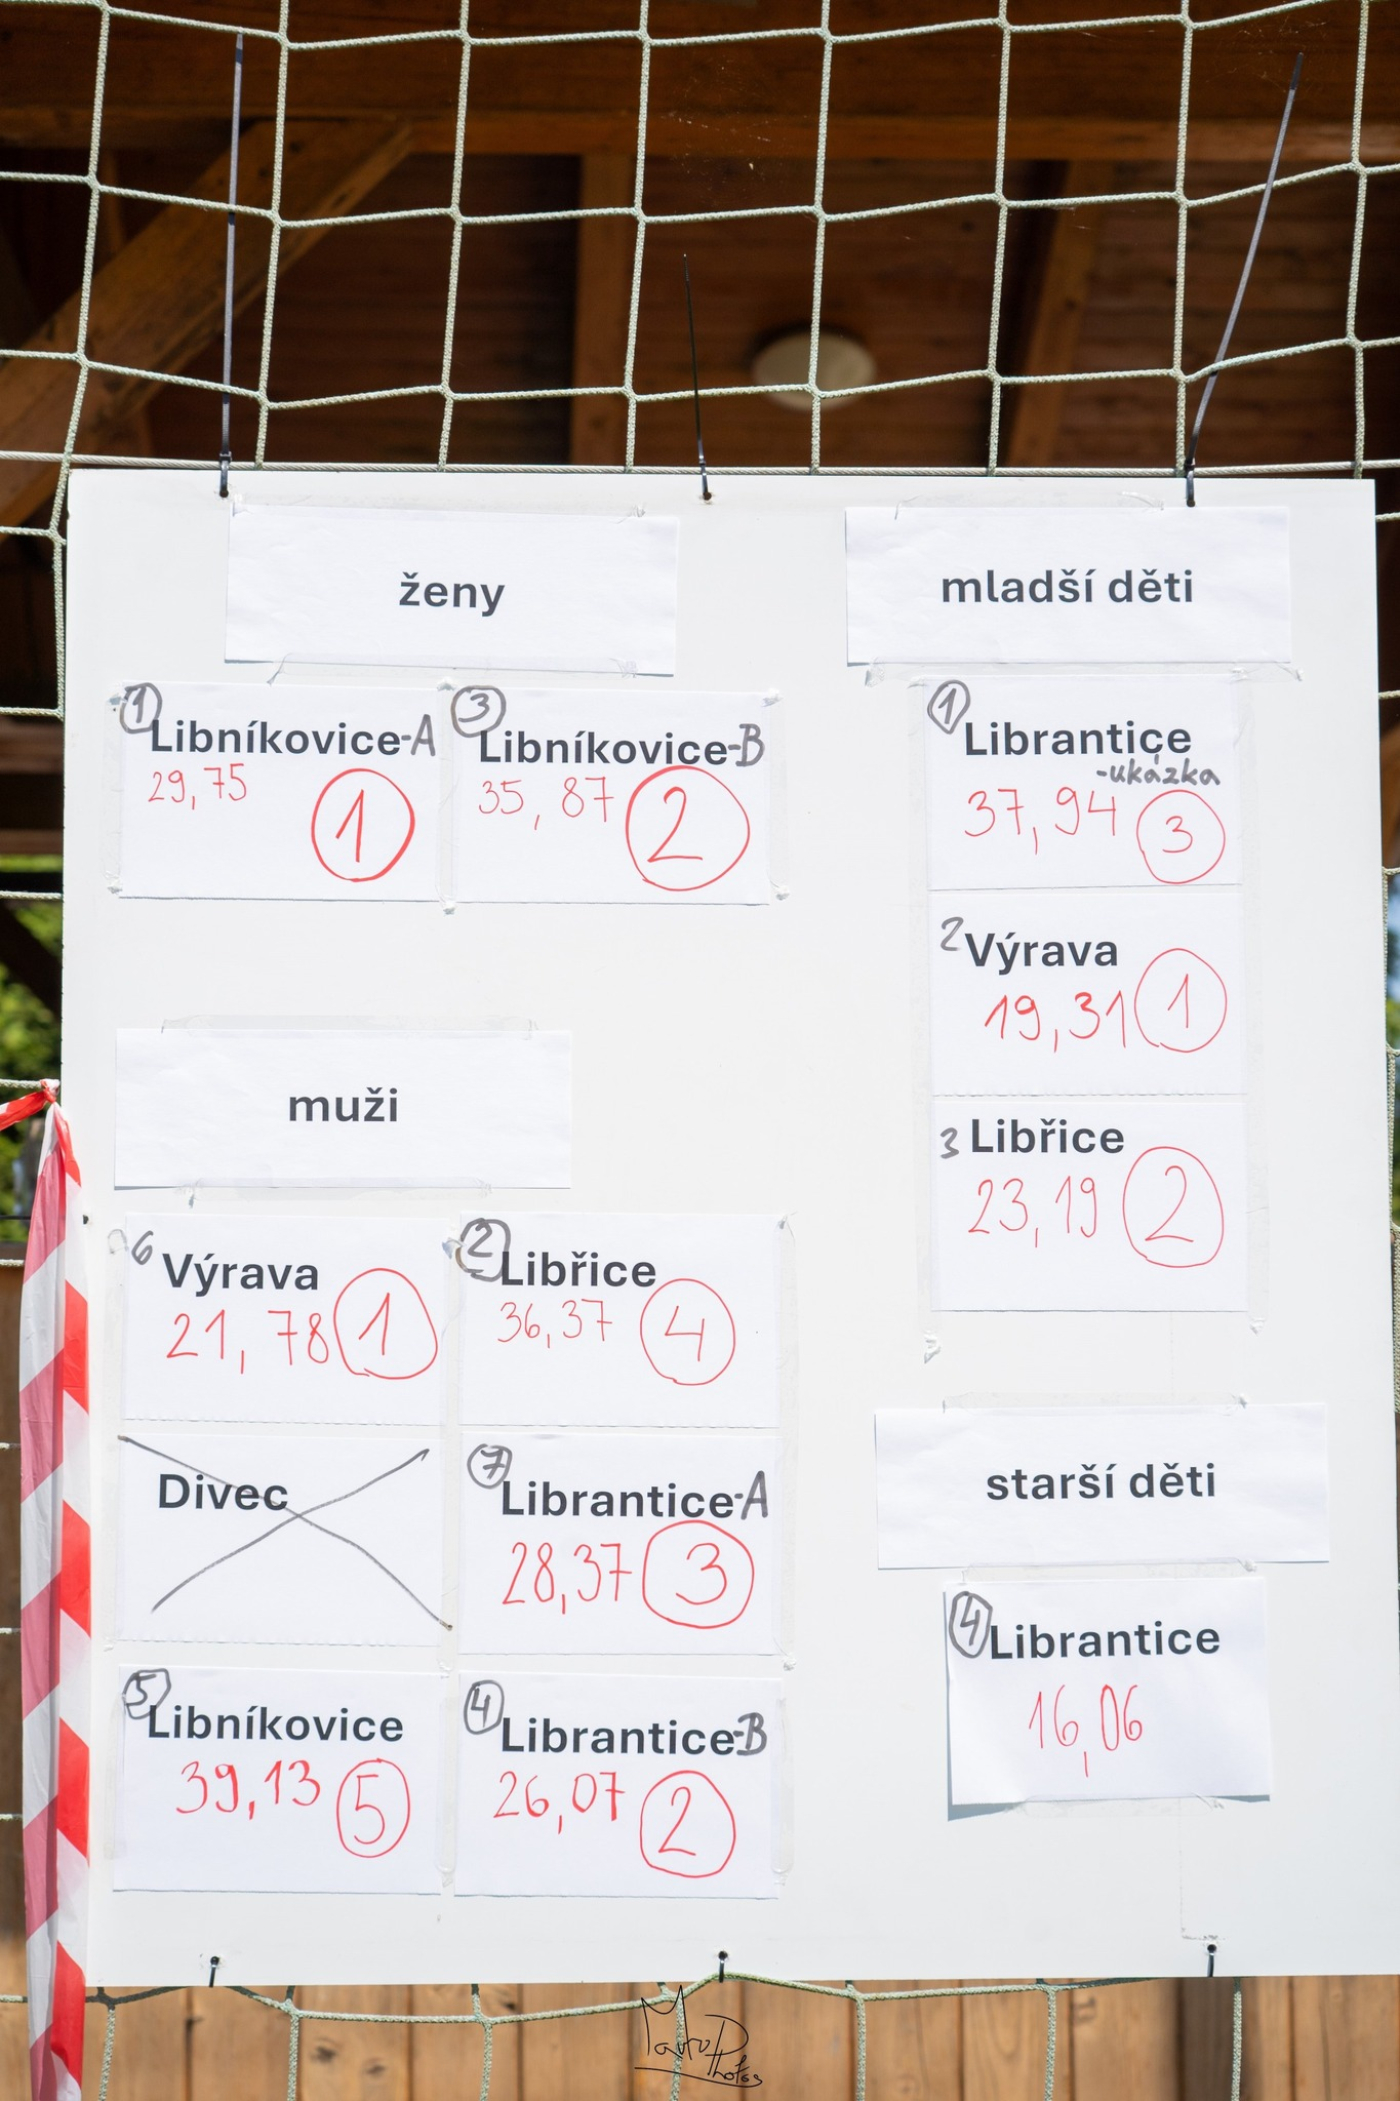 ženy
① Libníkovice-A
29,75 ①
③ Libníkovice-B
35,87 ②
muži
6 Výrava
21,78 ①
② Libřice
36,37 ④
Divec
⑦ Librantice-A
28,37 ③
⑤ Libníkovice
39,13 ⑤
④ Librantice-B
26,07 ②
mladší děti
① Librantice
-ukázka
37,94 ③
2 Výrava
19,31 ①
3 Libřice
23,19 ②
starší děti
④ Librantice
16,06
MauroP
Photos